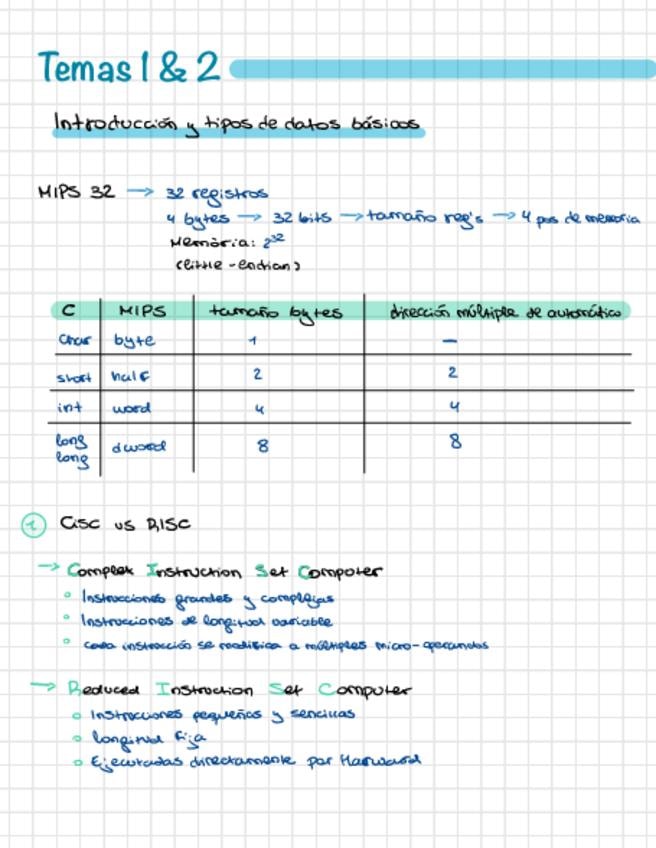 Temas 1 & 2
Introducción y tipos de datos básicos
MIPS 32 → 32 registros
4 bytes → 32 bits → tamaño reg's → 4 pos de memoria
Memòria: 2³²
(little-endian)
C MIPS tamaño bytes dirección múltiple de automático
char byte 1 —
short half 2 2
int word 4 4
long long dword 8 8
1 CISC vs RISC
→ Complex Instruction Set Computer
Instrucciones grandes y complejas
Instrucciones de longitud variable
cada instrucción se a múltiples micro-operandos
→ Reduced Instruction Set Computer
Instrucciones pequeñas y sencillas
longitud fija
Ejecutadas directamente por